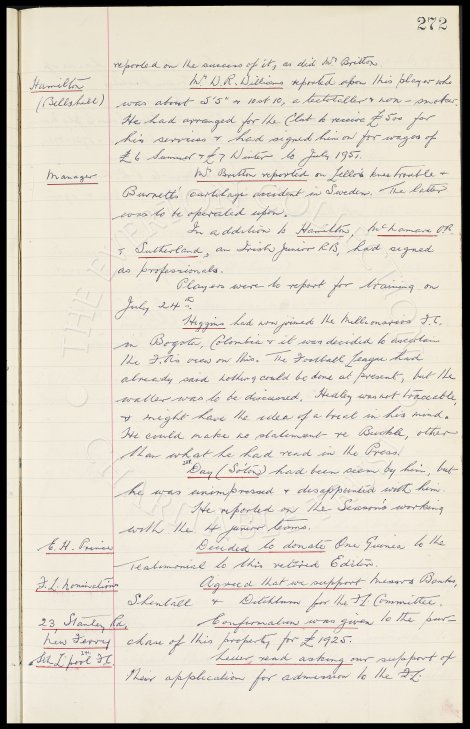 272
reported on the success of it, as did Mr Britton.
Hamilton
(Bellshill)
Mr D.R. Dillians reported upon this player who
was about 5'5" & 10st 10, a teetotaller & non-smoker.
He had arranged for the Club to receive £500 for
his services & had signed him on for wages of
£6 Summer & £7 Winter to July 1951.
Manager
Mr Britton reported on Lello's knee trouble &
Burnett's cartilage accident in Sweden. The latter
was to be operated upon.
In addition to Hamilton, McNamara O.R.
& Sutherland, an Irish Junior R.B, had signed
as professionals.
Players were to report for training on
July 24th.
Higgins had now joined the Millionarios F.C.
in Bogota, Colombia & it was decided to ascertain
the F.A's view on this. The Football League had
already said nothing could be done at present, but the
matter was to be discussed. Healey was not traceable,
& might have the idea of a break in his mind.
He could make no statement re Buckle, other
than what he had read in the Press.
Day (Soton) had been seen by him, but
he was unimpressed & disappointed with him.
He reported on the Season's working
with the 4 junior teams.
E. H. Prince
Decided to donate One Guinea to the
Testimonial to this retired Editor.
F.L. Nominations
Agreed that we support Messrs Banks,
Shentall & Ditchburn for the FL Committee.
23 Stanley Rd,
New Ferry
Confirmation was given to the pur-
chase of this property for £1925.
L'pool F.C.
Letter read asking our support of
their application for admission to the F.L.